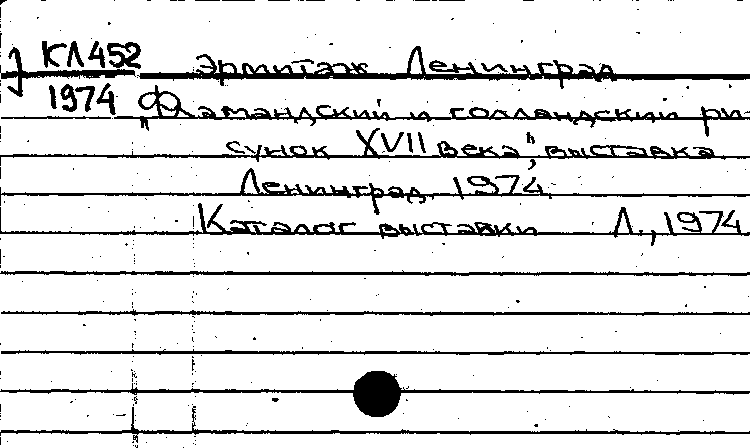 КЛ452 Эрмитаж Ленинград
1974 "Фламандский и голландский ри-
сунок XVII века", выставка
Ленинград, 1974.
Каталог выставки Л., 1974